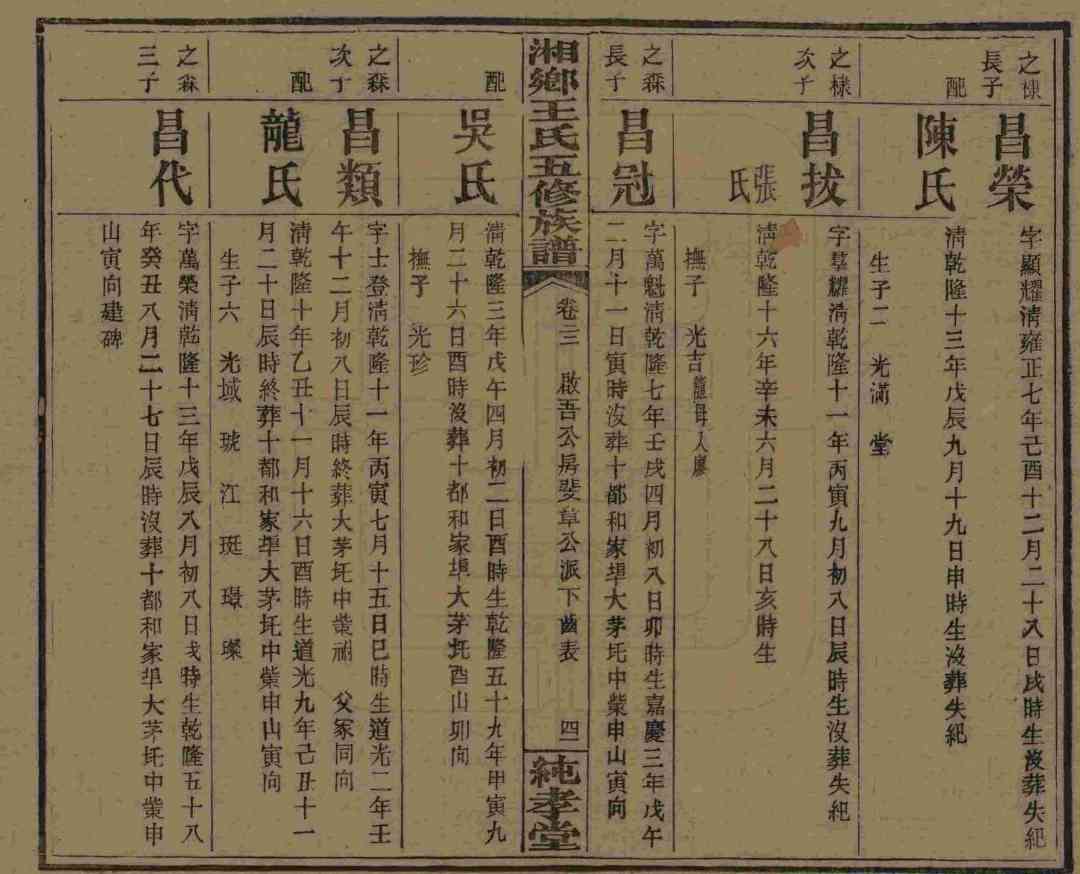 之棣
長子
昌榮
字顯耀淸雍正七年己酉十二月二十八日戌時生沒葬失紀
配
陳氏
淸乾隆十三年戊辰九月十九日申時生沒葬失紀
生子二 光滿 堂
之棣
次子
昌拔
字羣耀淸乾隆十一年丙寅九月初八日辰時生沒葬失紀
張氏
淸乾隆十六年辛未六月二十八日亥時生
撫子 光吉龍母人廖
之森
長子
昌冠
字萬魁淸乾隆七年壬戌四月初八日卯時生嘉慶三年戊午
二月十一日寅時沒葬十都和家埧大茅坵中棠申山寅向
湘鄉王氏五修族譜
卷三 啟吾公房斐章公派下齒表 四
純孝堂
配
吳氏
淸乾隆三年戊午四月初二日酉時生乾隆五十九年甲寅九
月二十六日酉時沒葬十都和家埧大茅坵酉山卯向
撫子 光珍
之森
次子
昌類
字士登淸乾隆十一年丙寅七月十五日巳時生道光二年壬
午十二月初八日辰時終葬大茅坵中棠祔 父冢同向
配
龍氏
淸乾隆十年乙丑十一月十六日酉時生道光九年己丑十一
月二十日辰時終葬十都和家埧大茅坵中棠申山寅向
生子六 光域 琥 江 珽 璟 璨
之森
三子
昌代
字萬榮淸乾隆十三年戊辰八月初八日戌時生乾隆五十八
年癸丑八月二十七日辰時沒葬十都和家埧大茅坵中棠申
山寅向建碑